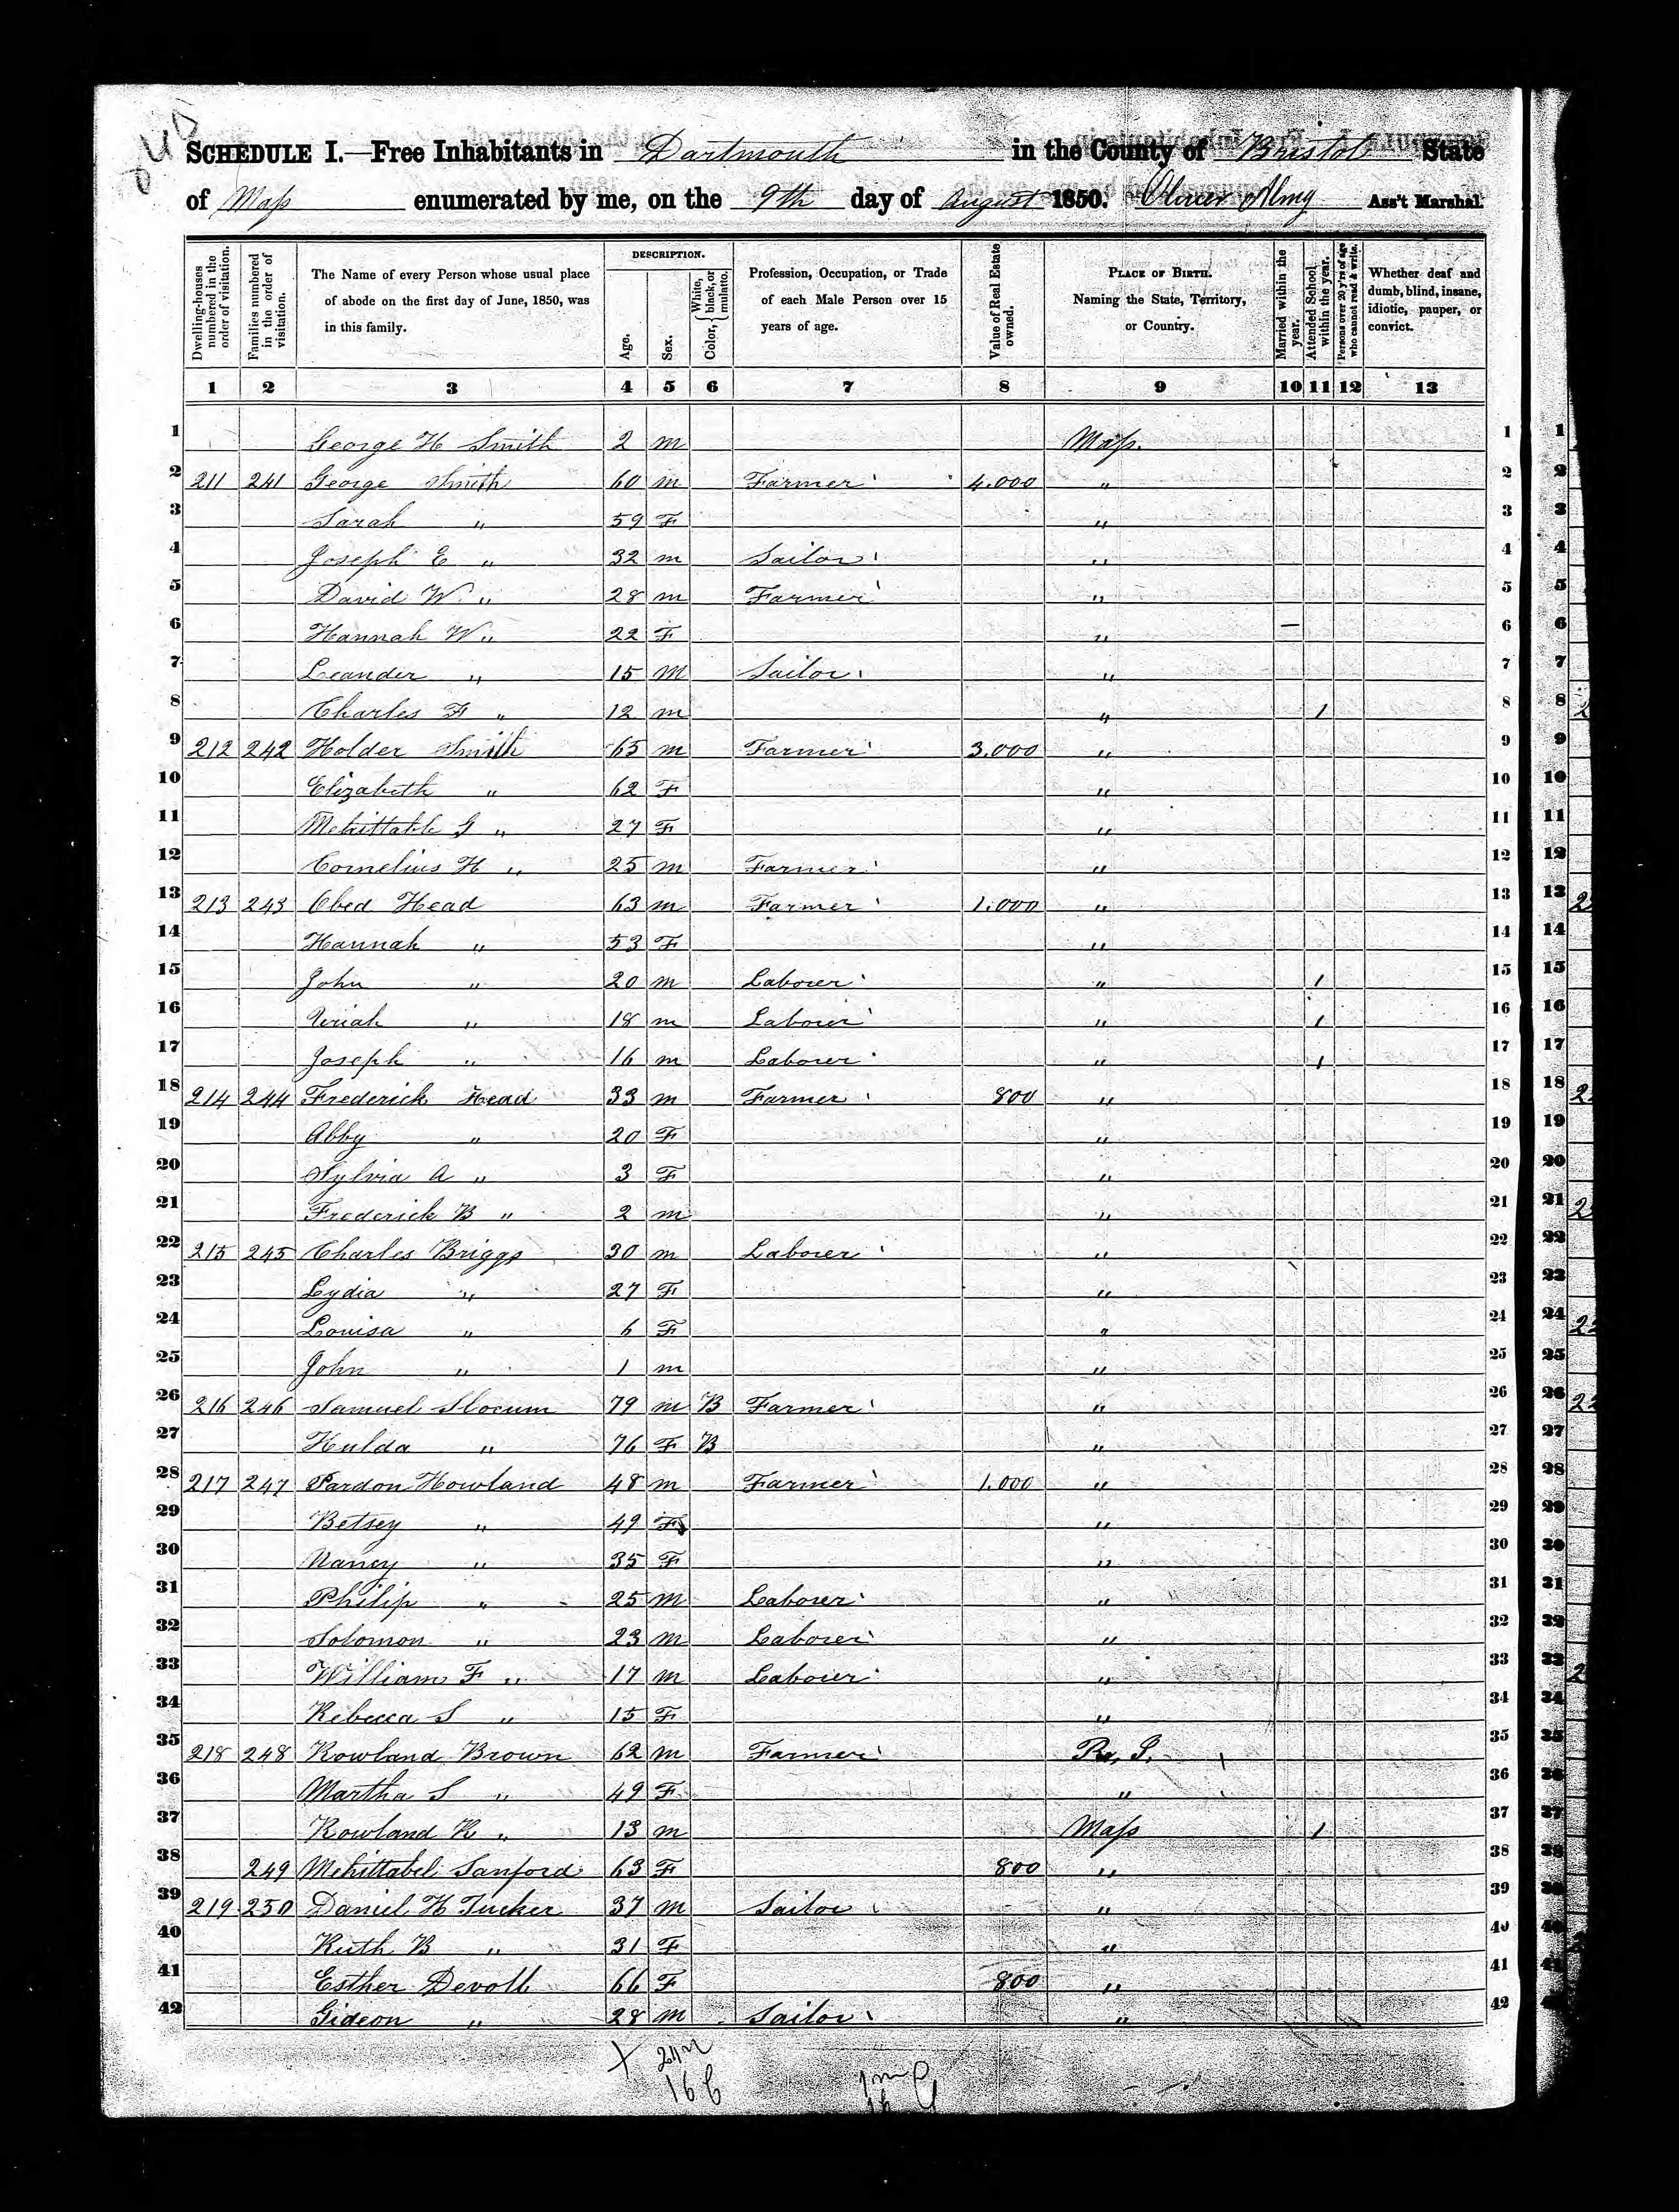 SCHEDULE I.—Free Inhabitants in Dartmouth in the County of Bristol State
of Mass enumerated by me, on the 9th day of August 1850. Oliver Almy Ass't Marshal.
Dwelling-houses numbered in the order of visitation.
Families numbered in the order of visitation.
The Name of every Person whose usual place of abode on the first day of June, 1850, was in this family.
DESCRIPTION.
Age.
Sex.
Color, { White, black, or mulatto.
Profession, Occupation, or Trade of each Male Person over 15 years of age.
Value of Real Estate owned.
PLACE OF BIRTH. Naming the State, Territory, or Country.
Married within the year.
Attended School within the year.
Persons over 20 y'rs of age who cannot read & write.
Whether deaf and dumb, blind, insane, idiotic, pauper, or convict.
1 2 3 4 5 6 7 8 9 10 11 12 13
1 George H Smith 2 m Mass. 1
2 211 241 George Smith 60 m Farmer 4.000 " 2
3 Sarah " 59 F " 3
4 Joseph E " 32 m Sailor " 4
5 David W " 28 m Farmer " 5
6 Hannah W " 22 F " — 6
7 Leander " 15 M Sailor " 7
8 Charles F " 12 m " 1 8
9 212 242 Holder Smith 65 m Farmer 3.000 " 9
10 Elizabeth " 62 F " 10
11 Mehittable G " 27 F " 11
12 Cornelius H " 25 m Farmer " 12
13 213 243 Obed Head 63 m Farmer 1.000 " 13
14 Hannah " 53 F " 14
15 John " 20 m Laborer " 1 15
16 Uriah " 18 m Laborer " 1 16
17 Joseph " 16 m Laborer " 1 17
18 214 244 Frederick Head 33 m Farmer 800 " 18
19 Abby " 20 F " 19
20 Sylvia A " 3 F " 20
21 Frederick B " 2 m " 21
22 215 245 Charles Briggs 30 m Laborer " 22
23 Lydia " 27 F " 23
24 Louisa " 6 F " 24
25 John " 1 m " 25
26 216 246 Samuel Slocum 79 m B Farmer " 26
27 Hulda " 76 F B " 27
28 217 247 Pardon Howland 48 m Farmer 1.000 " 28
29 Betsey " 49 F " 29
30 Nancy " 35 F " 30
31 Philip " 25 M Laborer " 31
32 Solomon " 23 M Laborer " 32
33 William F " 17 M Laborer " 33
34 Rebecca S " 15 F " 34
35 218 248 Rowland Brown 62 m Farmer R. I. 35
36 Martha S " 49 F " 36
37 Rowland R " 13 m Mass 1 37
38 249 Mehittabel Sanford 63 F 800 " 38
39 219 250 Daniel H Tucker 37 m Sailor " 39
40 Ruth B " 31 F " 40
41 Esther Devoll 66 F 800 " 41
42 Gideon " 28 M Sailor " 42